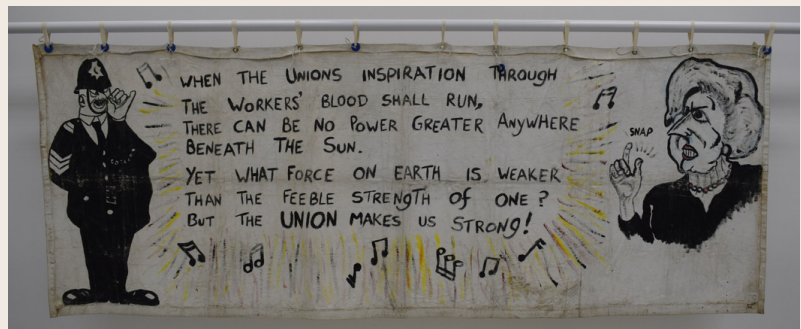 WHEN THE UNIONS INSPIRATION THROUGH
THE WORKERS' BLOOD SHALL RUN,
THERE CAN BE NO POWER GREATER ANYWHERE
BENEATH THE SUN.
YET WHAT FORCE ON EARTH IS WEAKER
THAN THE FEEBLE STRENGTH OF ONE?
BUT THE UNION MAKES US STRONG!
SNAP